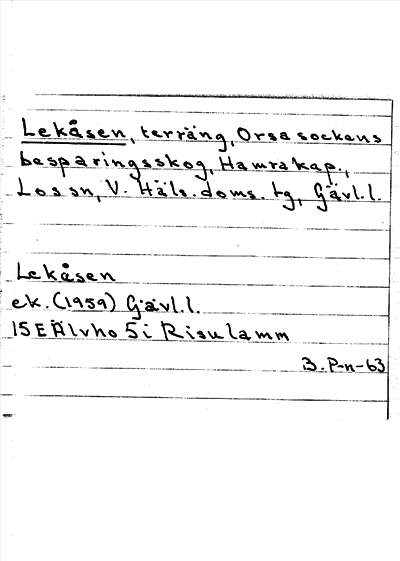 Lekåsen, terräng, Orsa sockens
besparingsskog, Hamra kap.,
Los sn, V. Häls. doms. tg, Gävl.l.
Lekåsen
ek. (1959) Gävl.l.
15E Älvho 5i Risulamm
B. P-n-63